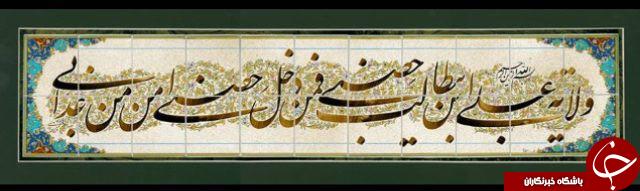 بسم الله الرحمن الرحیم
ولایة علی ابن ابیطالب حصنی فمن دخل حصنی امن من عذابی
باشگاه خبرنگاران